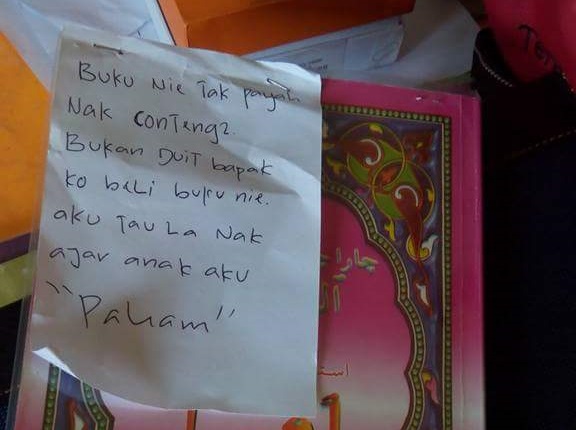 Buku Nie Tak payah
Nak conteng2.
Bukan Duit bapak
ko beli buku nie.
aku Tau La Nak
ajar anak aku
"Paham"